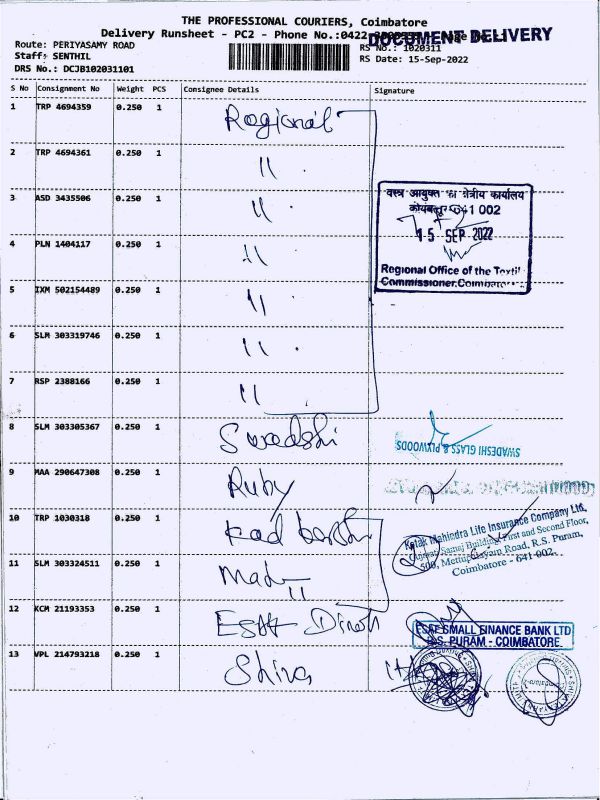 THE PROFESSIONAL COURIERS, Coimbatore
Delivery Runsheet - PC2 - Phone No.:0422
DOCUMENT DELIVERY
Route: PERIYASAMY ROAD
RS No.: 1020311
Staff: SENTHIL
RS Date: 15-Sep-2022
DRS No.: DCJB102031101
S No Consignment No Weight PCS Consignee Details Signature
1 TRP 4694359 0.250 1 Regional
2 TRP 4694361 0.250 1 "
3 ASD 3435506 0.250 1 "
4 PLN 1404117 0.250 1 "
5 IXM 502154489 0.250 1 "
6 SLM 303319746 0.250 1 "
7 RSP 2388166 0.250 1 "
वस्त्र आयुक्त का क्षेत्रीय कार्यालय
कोयम्बतूर 641 002
15 SEP 2022
Regional Office of the Textil
Commissioner.Coimbatore
8 SLM 303305367 0.250 1 Swadshi
SWADESHI GLASS & PLYWOODS
9 MAA 290647308 0.250 1 Ruby
10 TRP 1030318 0.250 1
11 SLM 303324511 0.250 1
Kotak Mahindra Life Insurance Company Ltd.
Gujarat Samaj Building, First and Second Floor,
509, Mettupalayam Road, R.S. Puram,
Coimbatore - 641 002.
12 KCM 21193353 0.250 1
ESAF SMALL FINANCE BANK LTD
R.S. PURAM - COIMBATORE.
13 VPL 214793218 0.250 1 Shiva